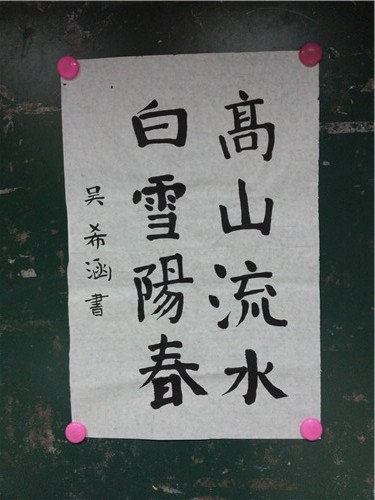 高山流水
白雪陽春
吴希涵書